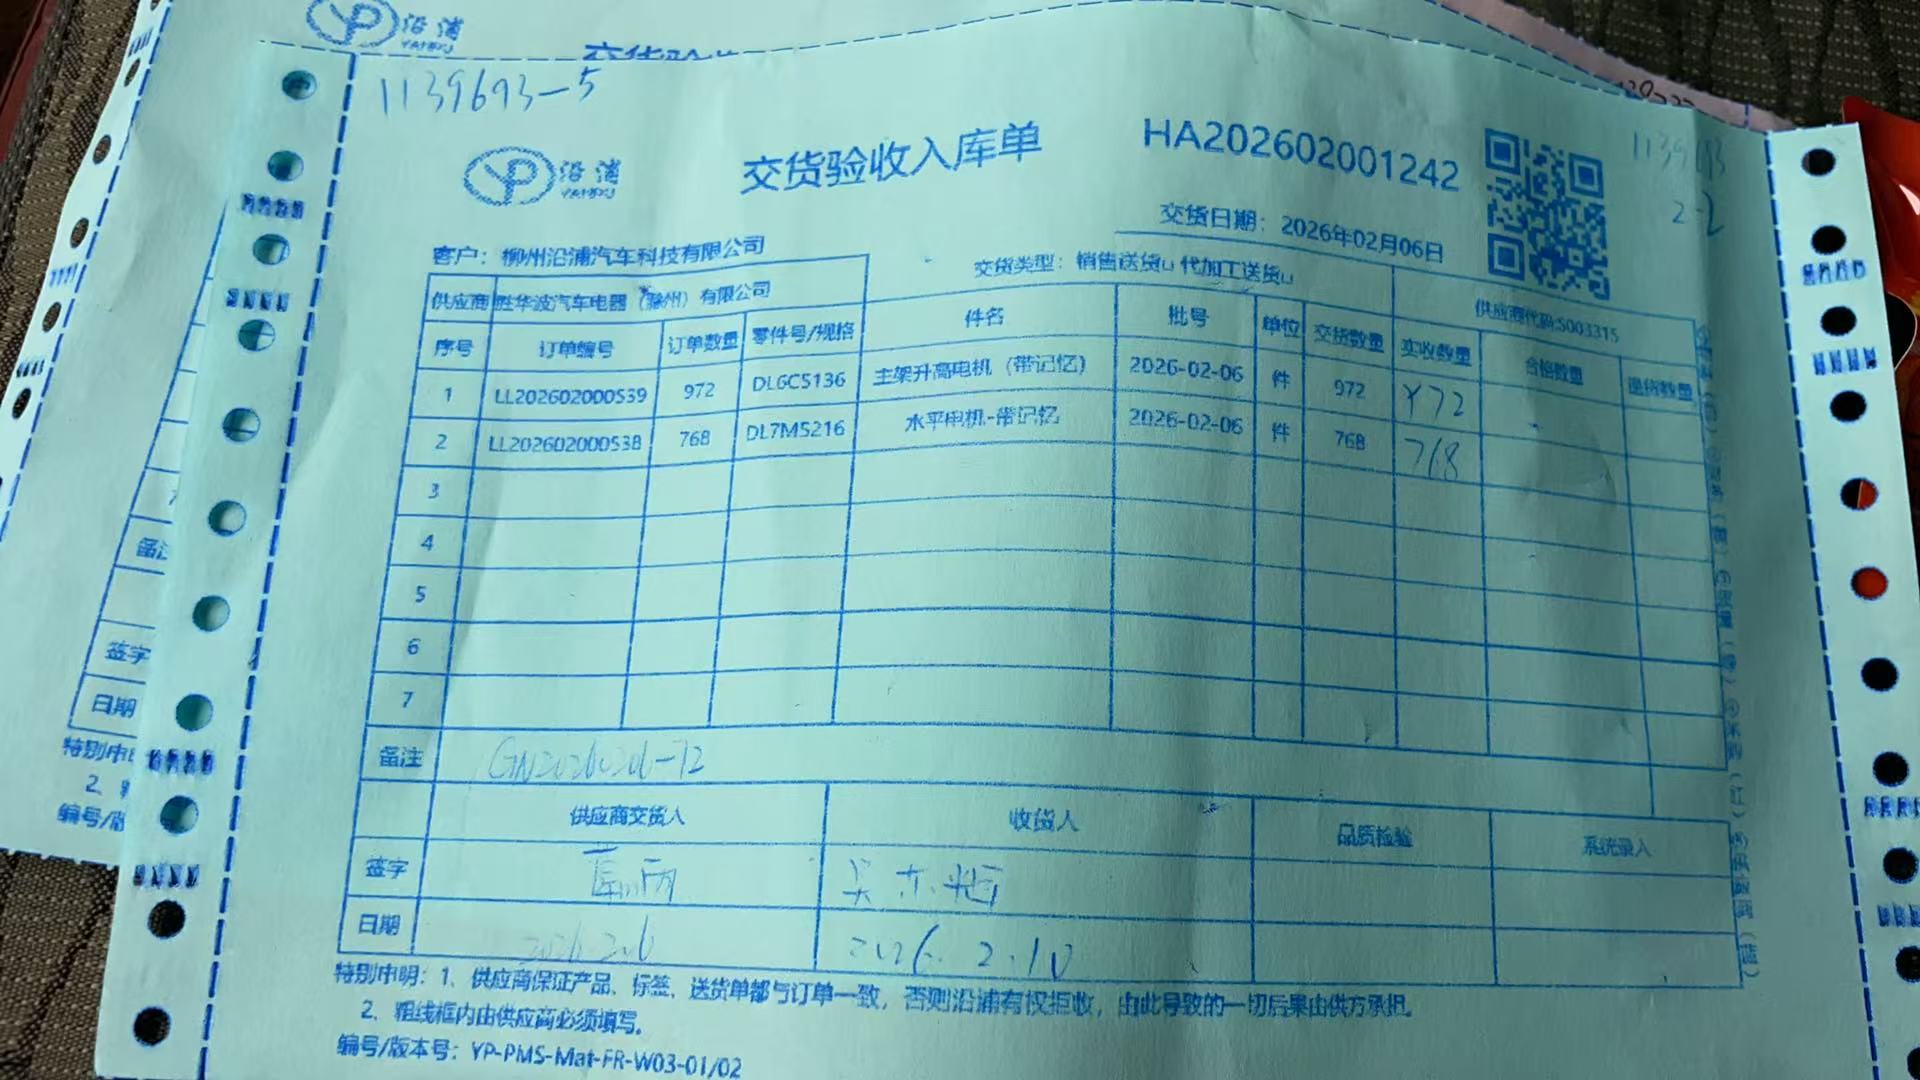 沿浦
YANPU
1139693-5
沿浦
YANPU
交货验收入库单
HA202602001242
1139693
2-2
交货日期：2026年02月06日
客户：柳州沿浦汽车科技有限公司
交货类型：销售送货□ 代加工送货□
供应商 胜华波汽车电器（滁州）有限公司
供应商代码:S003315
序号 订单编号 订单数量 零件号/规格 件名 批号 单位 交货数量 实收数量 合格数量 退货数量
1 LL202602000539 972 DL6C5136 主架升高电机（带记忆） 2026-02-06 件 972 972
2 LL202602000538 768 DL7M5216 水平电机-带记忆 2026-02-06 件 768 768
3
4
5
6
7
备注 GN20260206-72
供应商交货人 收货人 品质检验 系统录入
签字
日期 2026.2.6 2026.2.10
特别申明：1、供应商保证产品、标签、送货单都与订单一致，否则沿浦有权拒收，由此导致的一切后果由供方承担。
2、粗线框内由供应商必须填写。
编号/版本号：YP-PMS-Mat-FR-W03-01/02
备注
签字
日期
特别申明
2、
编号/版